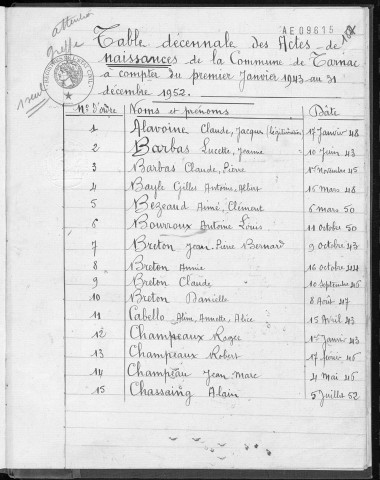 attention
Greffe
1 seul
AE 09615
Table décennale des Actes de
naissances de la Commune de Tarnac
à compter du premier Janvier 1943 au 31
décembre 1952.
N° d'ordre Noms et prénoms Date
1 Alavoine Claude, Jacques (légitimation) 17 Janvier 48
2 Barbas Lucette, Jeanne 10 Juin 43
3 Barbas Claude, Pierre 1er Novembre 45
4 Bayle Gilles Antoine, Albert 16 mars 48
5 Bezeaud Aimé, Clément 6 mars 50
6 Bourroux Antoine Louis 11 octobre 50
7 Breton Jean-Pierre Bernard 9 octobre 43
8 Breton Annie 16 octobre 44
9 Breton Claude 10 Septembre 46
10 Breton Danielle 8 Août 47
11 Cabello Alice, Annette, Alice 15 Avril 43
12 Champeaux Roger 1er Janvier 43
13 Champeaux Robert 17 février 46
14 Champeau Jean-Marc 4 Mai 46
15 Chassaing Alain 5 Juillet 52